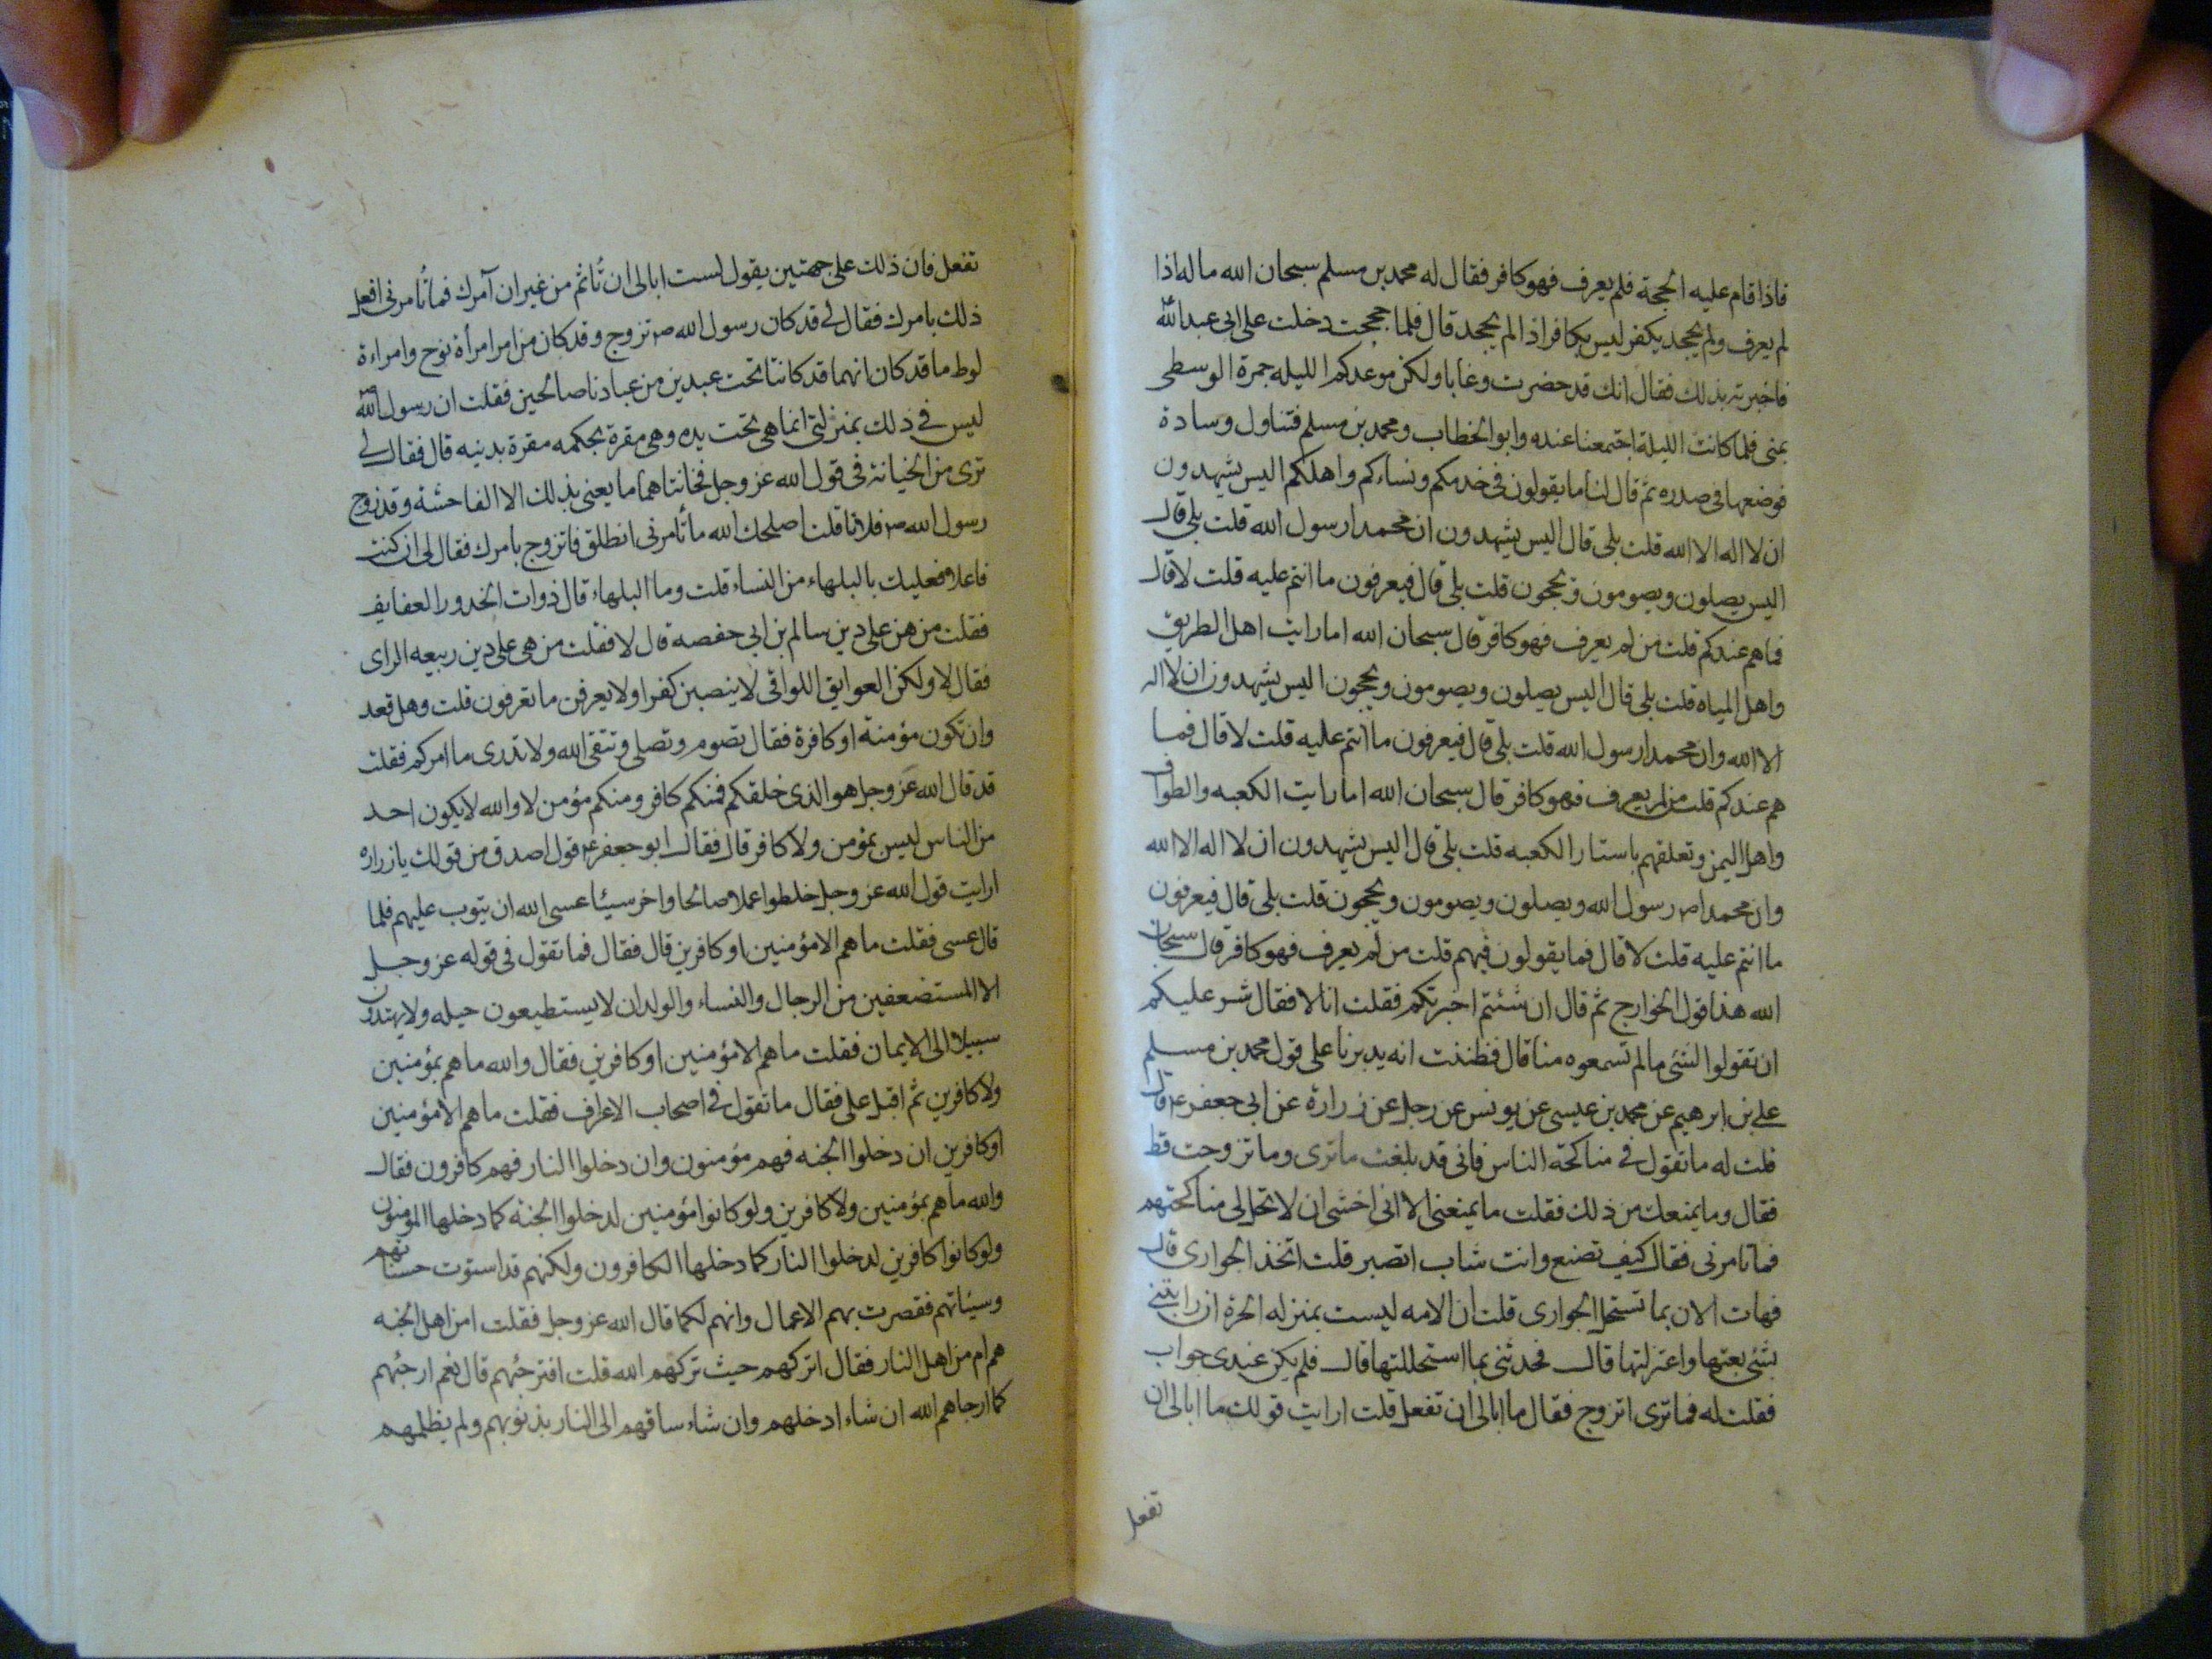 فاذا قام عليه الحجة فلم يعرف فهو كافر فقال له محمد بن مسلم سبحان الله ما له اذا
لم يعرف ولم يجحد يكفر ليس بكافر اذا لم يجحد قال فلما حججت دخلت على ابي عبد الله ع
فاخبرته بذلك فقال انك قد حضرت وغابا ولكن موعدكم الليله جمرة الوسطى
بمنى فلما كانت الليلة اجتمعنا عنده وابو الخطاب ومحمد بن مسلم فتناول وسادة
فوضعها فى صدره ثم قال لنا ما يقولون فى خدمكم ونساءكم واهلكم اليس يشهدون
ان لا اله الا الله قلت بلى قال اليس يشهدون ان محمدا رسول الله قلت بلى قال
اليس يصلون ويصومون ويحجون قلت بلى قال فيعرفون ما انتم عليه قلت لا قال
فما هم عندكم قلت من لم يعرف فهو كافر قال سبحان الله اما رايت اهل الطريق
واهل المياه قلت بلى قال اليس يصلون ويصومون ويحجون اليس يشهدون ان لا اله
الا الله وان محمدا رسول الله قلت بلى قال فيعرفون ما انتم عليه قلت لا قال فما
هم عندكم قلت من لم يعرف فهو كافر قال سبحان الله اما رايت الكعبه والطواف
واهل اليمن وتعلقهم باستار الكعبه قلت بلى قال اليس يشهدون ان لا اله الا الله
وان محمدا ص رسول الله ويصلون ويصومون ويحجون قلت بلى قال فيعرفون
ما انتم عليه قلت لا قال فما يقولون فيهم قلت من لم يعرف فهو كافر قال سبحان
الله هذا قول الخوارج ثم قال ان شئتم اخبرتكم فقلت انا لا فقال شر عليكم
ان تقولوا لشئ ما لم تسمعوه منا قال فظننت انه يديرنا على قول محمد بن مسلم
على بن ابرهيم عن محمد بن عيسى عن يونس عن رجل عن زرارة عن ابى جعفر ع قال
قلت له ما تقول فى مناكحة الناس فانى قد بلغت ما ترى وما تزوجت قط
فقال وما يمنعك من ذلك فقلت ما يمنعنى الا انى اخشى ان لا تحل لى مناكحتهم
فما تامرنى فقال كيف تصنع وانت شاب اتصبر قلت اتخذ الجوارى قال
فهات الان بما تستحل الجوارى قلت ان الامه ليست بمنزله الحرة ان رابتنى
بشئ بعتها واعتزلتها قال فحدثنى بما استحللتها قال فلم يكن عندى جواب
فقلت له فما ترى اتزوج فقال ما ابالى ان تفعل قلت ارايت قولك ما ابالى ان
تفعل
تفعل فان ذلك على جهتين يقول لست ابالى ان تأثم من غير ان آمرك فما تأمرنى افعل
ذلك بامرك فقال لى قد كان رسول الله ص تزوج وقد كان من امر امرأة نوح وامراءة
لوط ما قد كان انهما قد كانتا تحت عبدين من عبادنا صالحين فقلت ان رسول الله ص
ليس فى ذلك بمنزلتى انما هى تحت يده وهى مقرة بحكمه مقرة بدينه قال فقال لى
ترى من الخيانة فى قول الله عز وجل فخانتاهما ما يعنى بذلك الا الفاحشة وقد زوج
رسول الله ص فلانا قلت اصلحك الله ما تأمرنى انطلق فاتزوج بامرك فقال لى ان كنت
فاعلا فعليك بالبلهاء من النساء قلت وما البلهاء قال ذوات الخدور العفايف
فقلت من هن على دين سالم بن ابى حفصه قال لا فقلت من هى على دين ربيعه الراى
فقال لا ولكن العوايق اللواتى لا ينصبن كفرا ولا يعرفن ما تعرفون قلت وهل تعد
وان تكون مؤمنة او كافرة فقال تصوم وتصلى وتتقى الله ولا تدرى ما امركم فقلت
قد قال الله عز وجل هو الذى خلقكم فمنكم كافر ومنكم مؤمن لا والله لا يكون احد
من الناس ليس بمؤمن ولا كافر قال فقال ابو جعفر ع قول اصدق من قولك يا زراره
ارايت قول الله عز وجل خلطوا عملا صالحا واخر سيئا عسى الله ان يتوب عليهم فلما
قال عسى فقلت ما هم الا مؤمنين او كافرين قال فقال فما تقول فى قوله عز وجل
الا المستضعفين من الرجال والنساء والولدان لا يستطيعون حيله ولا يهتدون
سبيلا الى الايمان فقلت ما هم الا مؤمنين او كافرين فقال والله ما هم بمؤمنين
ولا كافرين ثم اقبل على فقال ما تقول فى اصحاب الاعراف فقلت ما هم الا مؤمنين
او كافرين ان دخلوا الجنه فهم مؤمنون وان دخلوا النار فهم كافرون فقال
والله ما هم بمؤمنين ولا كافرين ولو كانوا مؤمنين لدخلوا الجنة كما دخلها المؤمنون
ولو كانوا كافرين لدخلوا النار كما دخلها الكافرون ولكنهم قد استوت حسناتهم
وسيئاتهم فقصرت بهم الاعمال وانهم لكما قال الله عز وجل فقلت امن اهل الجنه
هم ام من اهل النار فقال اتركهم حيث تركهم الله قلت افترجئهم قال نعم ارجئهم
كما ارجاهم الله ان شاء ادخلهم وان شاء ساقهم الى النار بذنوبهم ولم يظلمهم